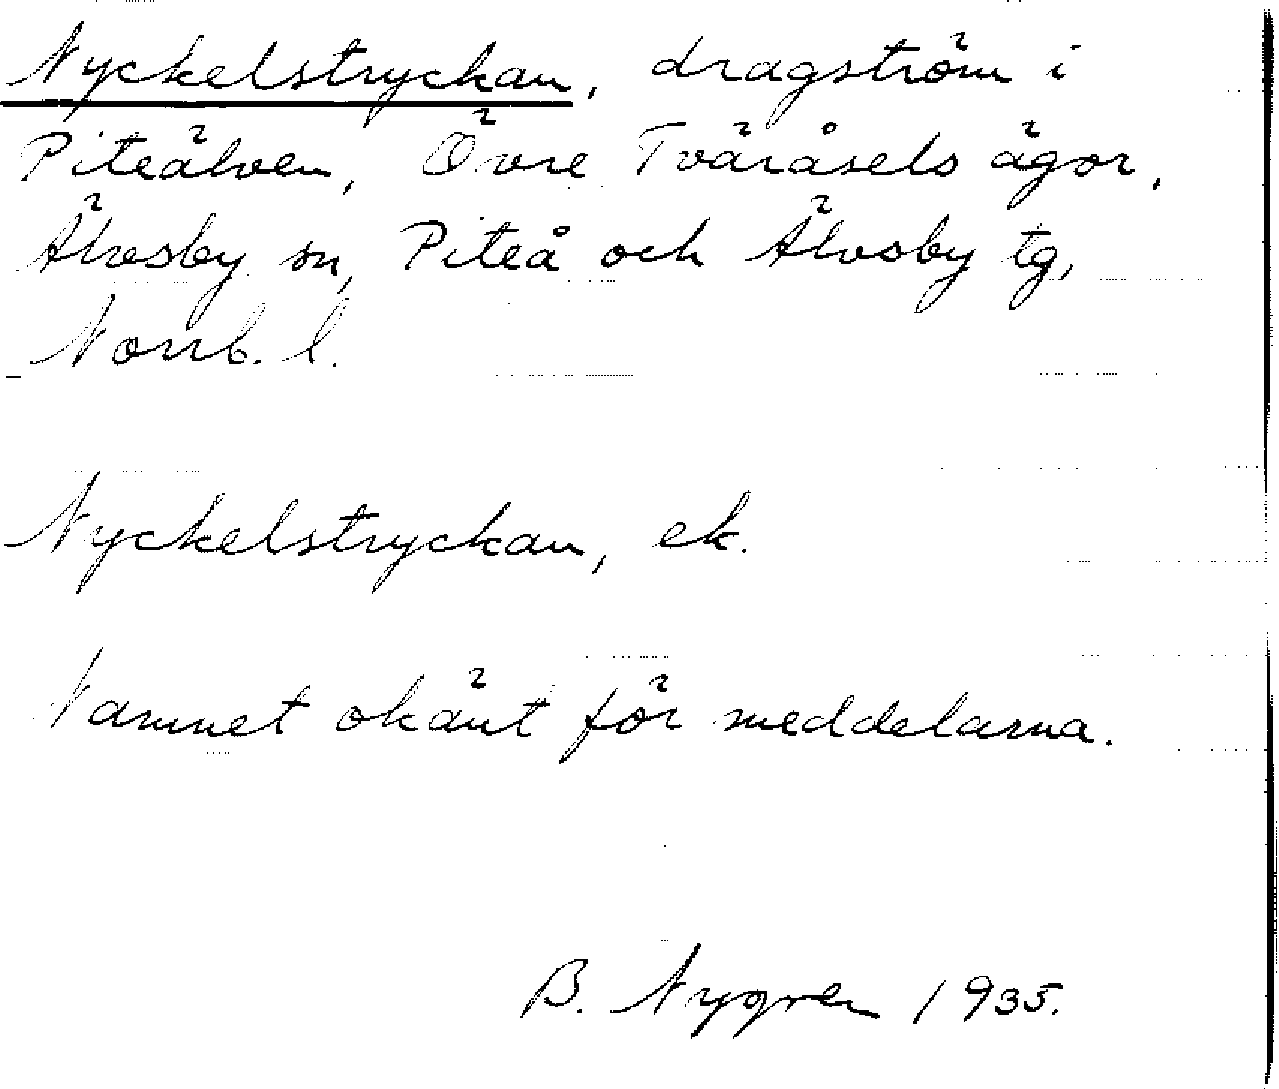 Nyckelstryckan, dragström i
Piteälven, Övre Tväråsels ägor,
Älvsby sn, Piteå och Älvsby tg,
Norrb. l.
Nyckelstryckan, ek.
Namnet okänt för meddelarna.
B. Nygren 1935.